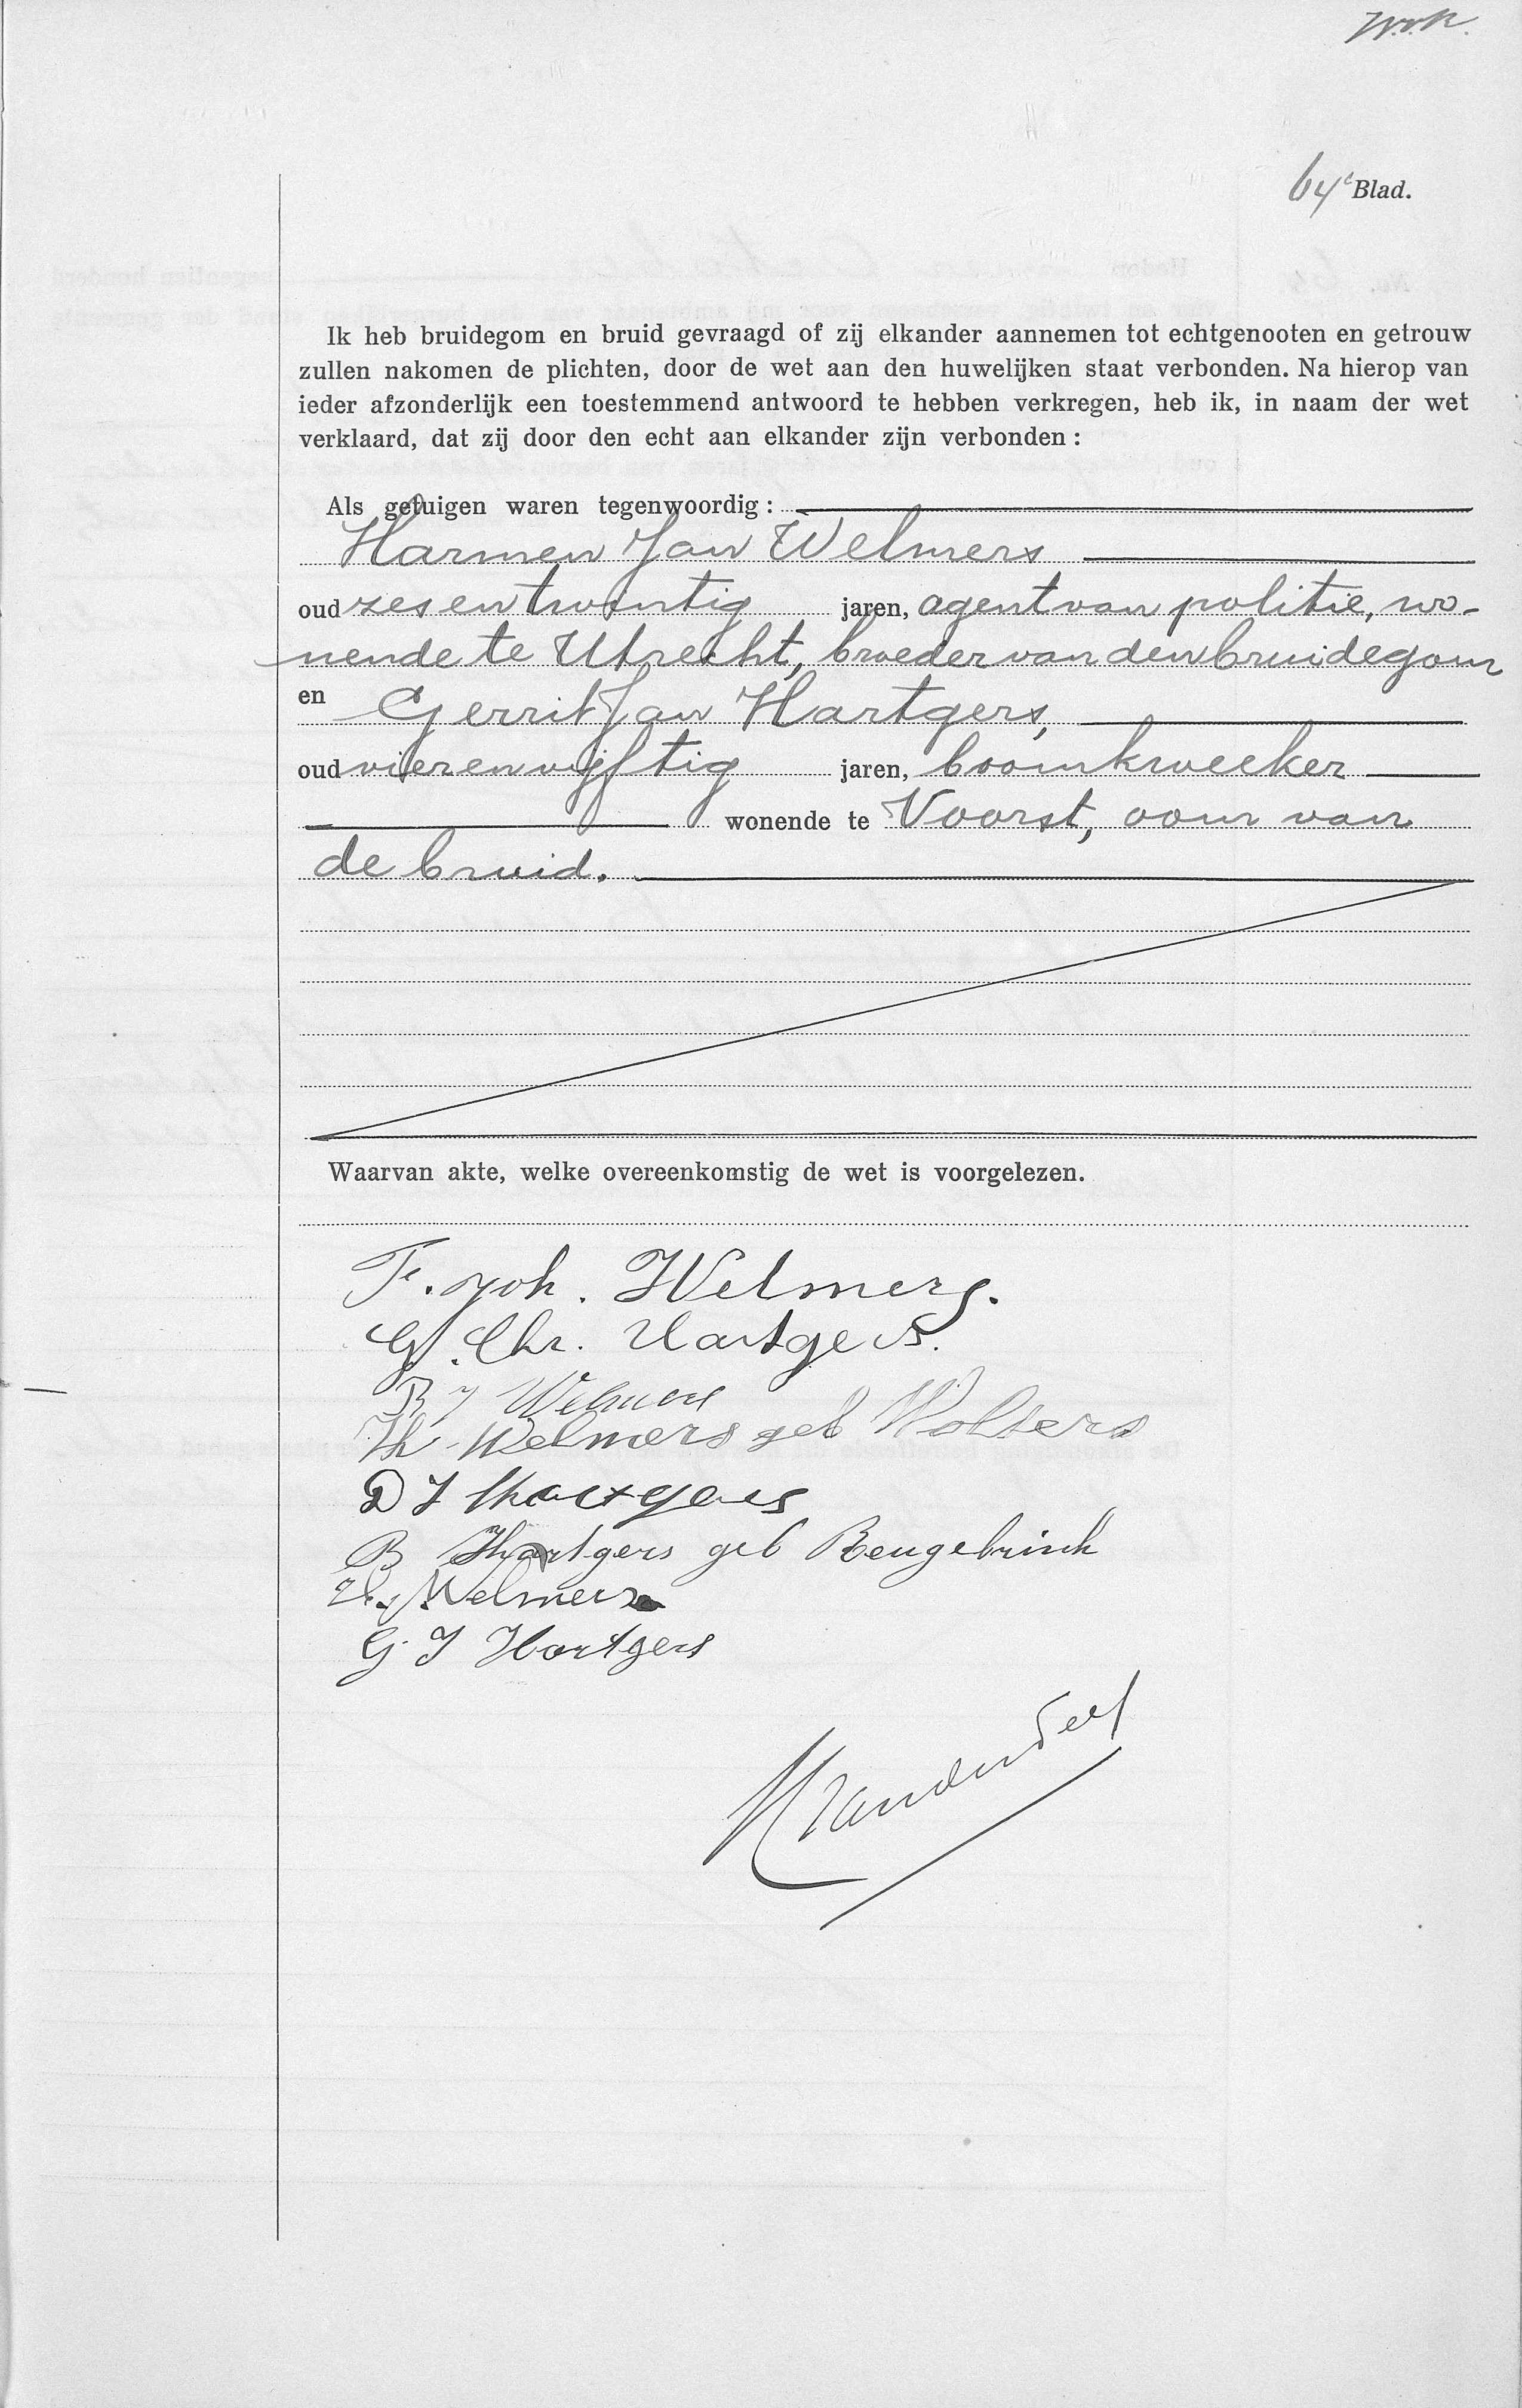 64e Blad.
Ik heb bruidegom en bruid gevraagd of zij elkander aannemen tot echtgenooten en getrouw
zullen nakomen de plichten, door de wet aan den huwelijken staat verbonden. Na hierop van
ieder afzonderlijk een toestemmend antwoord te hebben verkregen, heb ik, in naam der wet
verklaard, dat zij door den echt aan elkander zijn verbonden :
Als getuigen waren tegenwoordig :
Harmen Jan Welmers
oud zes en twintig jaren, agent van politie, wo-
nende te Utrecht, broeder van den bruidegom
en Gerrit Jan Hartgers,
oud vier en vijftig jaren, boomkweeker
wonende te Voorst, oom van
de bruid.
Waarvan akte, welke overeenkomstig de wet is voorgelezen.
F. Joh. Welmers.
G. Chr. Hartgers.
Welmers
Th. Welmers geb Wolters
D J Hartgers
B Hartgers geb Beugebrink
H. J. Welmers
G. J Hartgers